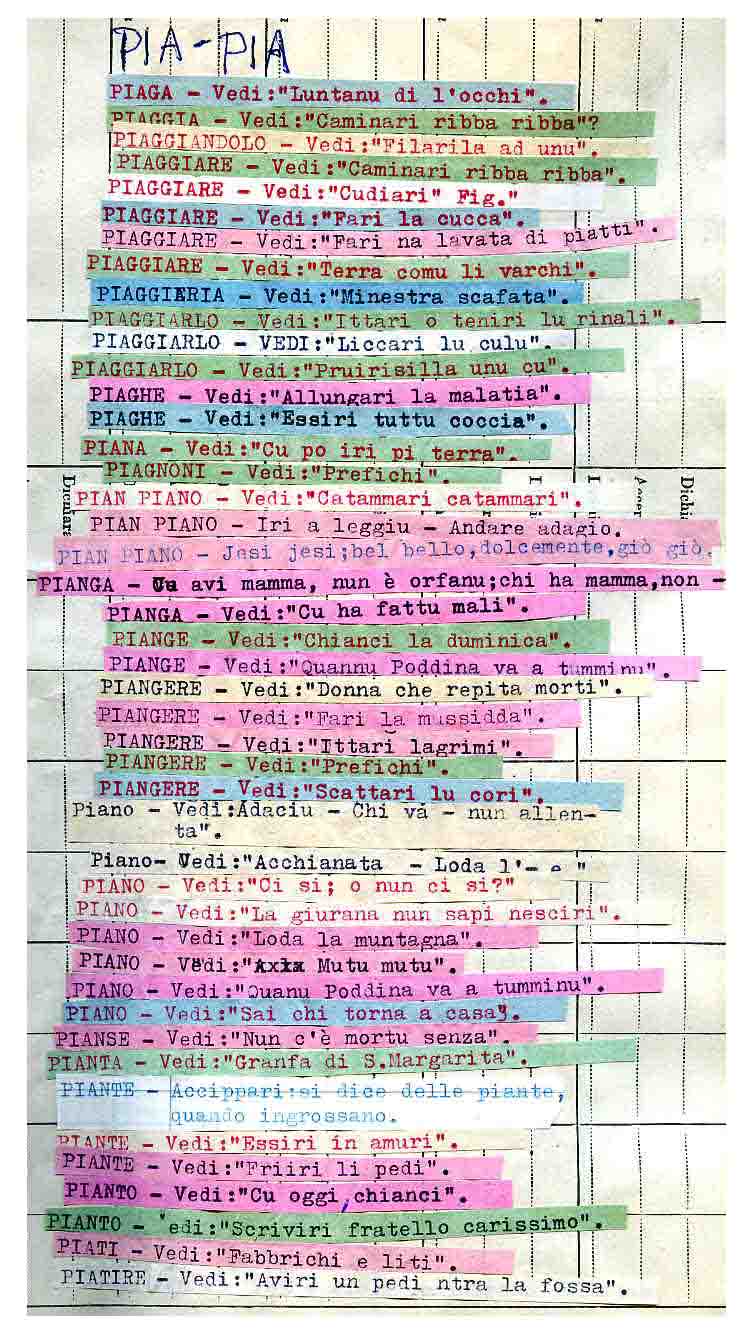 PIA-PIA
PIAGA - Vedi:"Luntanu di l'occhi".
PIAGGIA - Vedi:"Caminari ribba ribba"?
PIAGGIANDOLO - Vedi:"Filarila ad unu".
PIAGGIARE - Vedi:"Caminari ribba ribba".
PIAGGIARE - Vedi:"Cudiari" Fig."
PIAGGIARE - Vedi:"Fari la cucca".
PIAGGIARE - Vedi:"Fari na lavata di piatti".
PIAGGIARE - Vedi:"Terra comu li varchi".
PIAGGIERIA - Vedi:"Minestra scafata".
PIAGGIARLO - Vedi:"Ittari o teniri lu rinali".
PIAGGIARLO - VEDI:"Liccari lu culu".
PIAGGIARLO - Vedi:"Pruirisilla unu cu".
PIAGHE - Vedi:"Allungari la malatia".
PIAGHE - Vedi:"Essiri tuttu coccia".
PIANA - Vedi:"Cu po iri pi terra".
PIAGNONI - Vedi:"Prefichi".
PIAN PIANO - Vedi:"Catammari catammari".
PIAN PIANO - Iri a leggiu - Andare adagio.
PIAN PIANO - Jesi jesi;bel bello,dolcemente,giò giò.
PIANGA - Cu avi mamma, nun è orfanu;chi ha mamma,non -
PIANGA - Vedi:"Cu ha fattu mali".
PIANGE - Vedi:"Chianci la duminica".
PIANGE - Vedi:"Quannu Poddina va a tumminu".
PIANGERE - Vedi:"Donna che repita morti".
PIANGERE - Vedi:"Fari la mussidda".
PIANGERE - Vedi:"Ittari lagrimi".
PIANGERE - Vedi:"Prefichi".
PIANGERE - Vedi:"Scattari lu cori".
Piano - Vedi:Adaciu - Chi va - nun allen-
ta".
Piano- Vedi:"Acchianata - Loda l'- e "
PIANO - Vedi:"Ci si; o nun ci si?"
PIANO - Vedi:"La giurana nun sapi nesciri".
PIANO - Vedi:"Loda la muntagna".
PIANO - Vedi:" Mutu mutu".
PIANO - Vedi:"Quanu Poddina va a tumminu".
PIANO - Vedi:"Sai chi torna a casa".
PIANSE - Vedi:"Nun c'è mortu senza".
PIANTA - Vedi:"Granfa di S.Margarita".
PIANTE - Accippari:si dice delle piante,
quando ingrossano.
PIANTE - Vedi:"Essiri in amuri".
PIANTE - Vedi:"Friiri li pedi".
PIANTO - Vedi:"Cu oggi,chianci".
PIANTO - 'edi:"Scriviri fratello carissimo".
PIATI - Vedi:"Fabbrichi e liti".
PIATIRE - Vedi:"Aviri un pedi ntra la fossa".